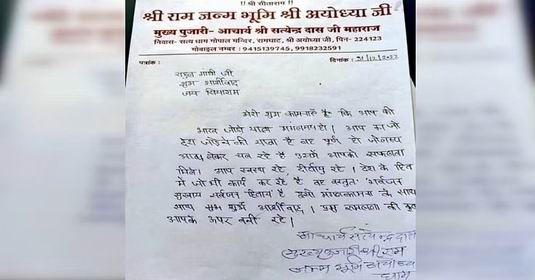 ॥ श्री सीताराम ॥
श्री राम जन्म भूमि श्री अयोध्या जी
मुख्य पुजारी - आचार्य श्री सत्येन्द्र दास जी महाराज
निवास- सत्य धाम गोपाल मन्दिर, रामघाट, श्री अयोध्या जी, पिन- 224123
मोबाइल नम्बर : 9415139745, 9918232591
पत्रांक : दिनांक : 31/12/2022
राहुल गांधी जी
शुभ आशीर्वाद
जय सियाराम
मेरी शुभ कामनाएँ हैं कि आप की
भारत जोड़ो यात्रा मंगलमय हो। आप का जो
देश जोड़ने की यात्रा है वह पूर्ण हो जो लक्ष्य
आप लेकर चल रहे हैं उसमें आपको सफलता
मिले। आप स्वस्थ रहें, दीर्घायु रहें। देश के हित
में जो भी कार्य कर रहे हैं वह वस्तुतः सर्वजन
सुखाय सर्वजन हिताय है इसी मंगलकामना के साथ
शुभ आशीर्वाद। प्रभु रामलला की कृपा
आपके ऊपर बनी रहे।
आचार्य सत्येन्द्र दास
मुख्य पुजारी श्री राम
जन्म भूमि अयोध्या
धाम